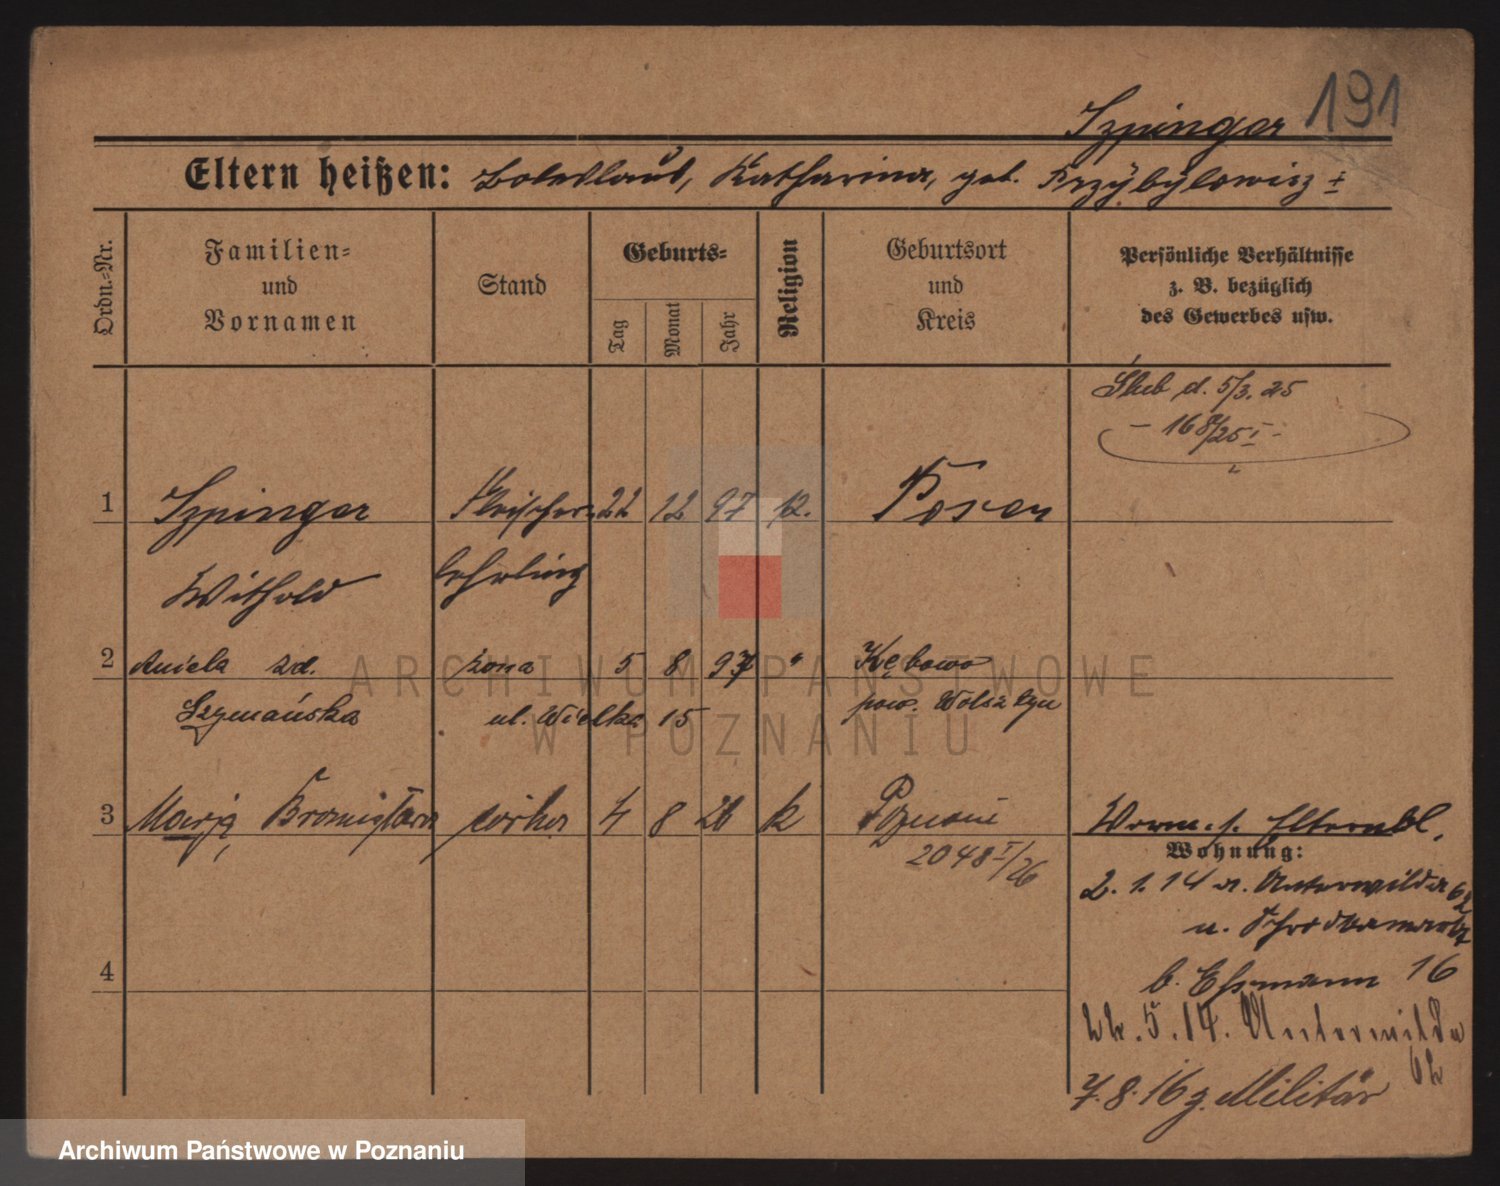 191
Szpinger
Eltern heißen: Boleslaus, Katharina, geb. Przybylowicz ±
Ordn.-Nr.
Familien-
und
Vornamen
Stand
Geburts-
Tag
Monat
Jahr
Religion
Geburtsort
und
Kreis
Persönliche Verhältnisse
z. B. bezüglich
des Gewerbes usw.
Ślub d. 5/3. 25
- 168/25 I -
1 Szpinger Fleischer- 22 12 97 k. Posen
Withold lehrling
2 Aniela zd. żona 5 8 97 " Kębowo
Szymańska ul. Wielka 15 pow. Wolsztyn
3 Marja Bronisława córka 4 8 26 k Poznań
2048 I/26
Vorm. s. Elternbl.
Wohnung:
2. 1. 14 a. Unterwilda 62
u.
b. Ehrmann 16
22. 5. 14. Unterwilda
62
4
7. 8. 16 z. Militär
ARCHIWUM PAŃSTWOWE
W POZNANIU
Archiwum Państwowe w Poznaniu